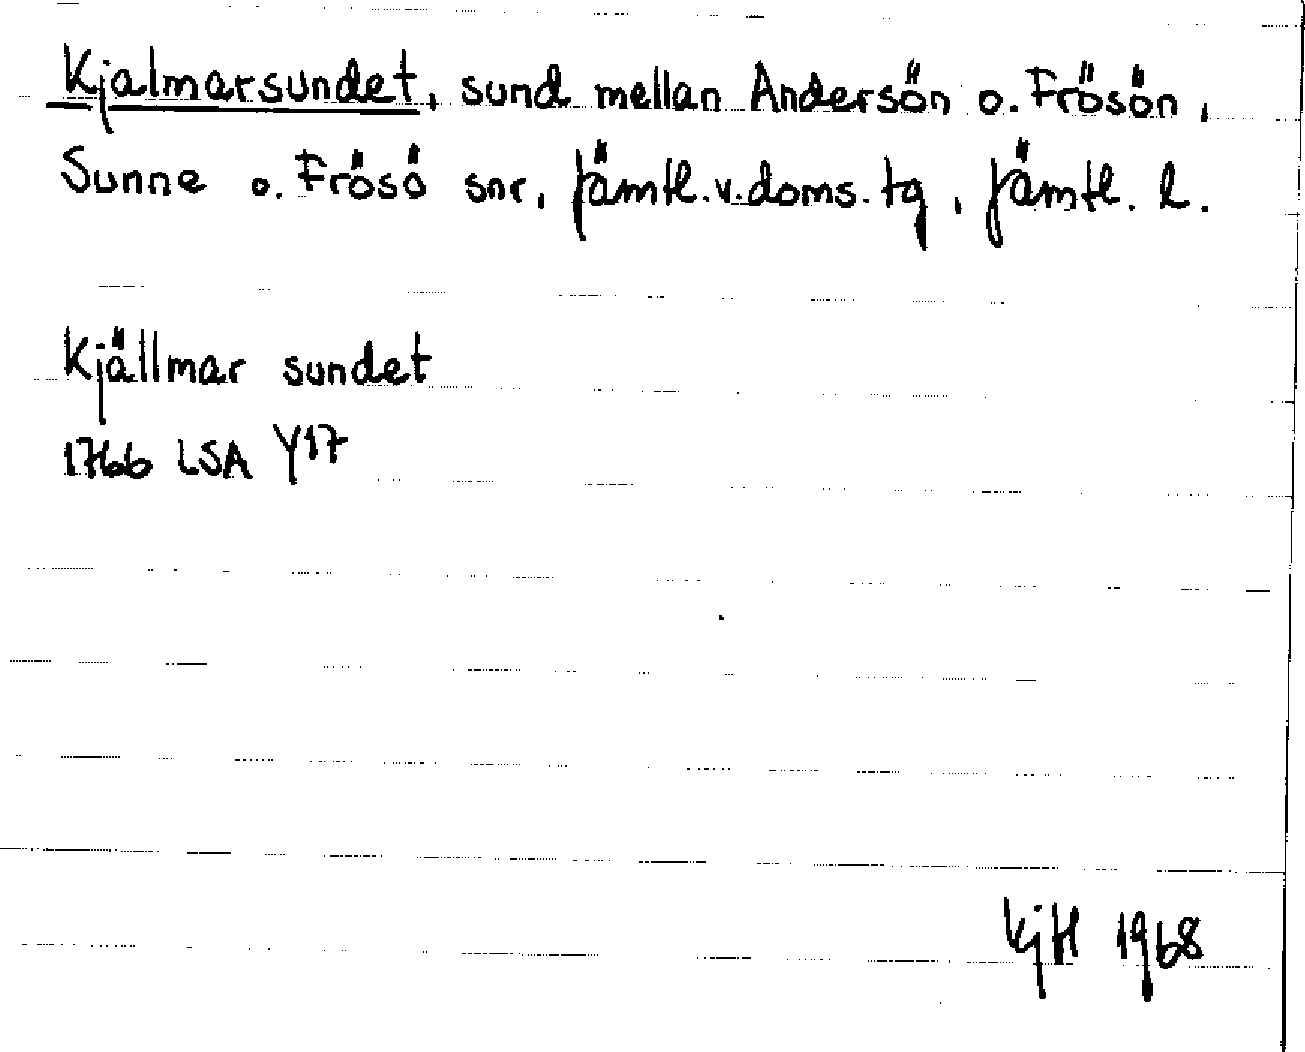 Kjalmarsundet, sund mellan Andersön o. Frösön,
Sunne o. Frösö snr, Jämtl. v. doms. tg, Jämtl. l.
Kjällmar sundet
1766 LSA Y17
KjH 1968